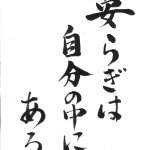 安らぎは
自分の中に
ある